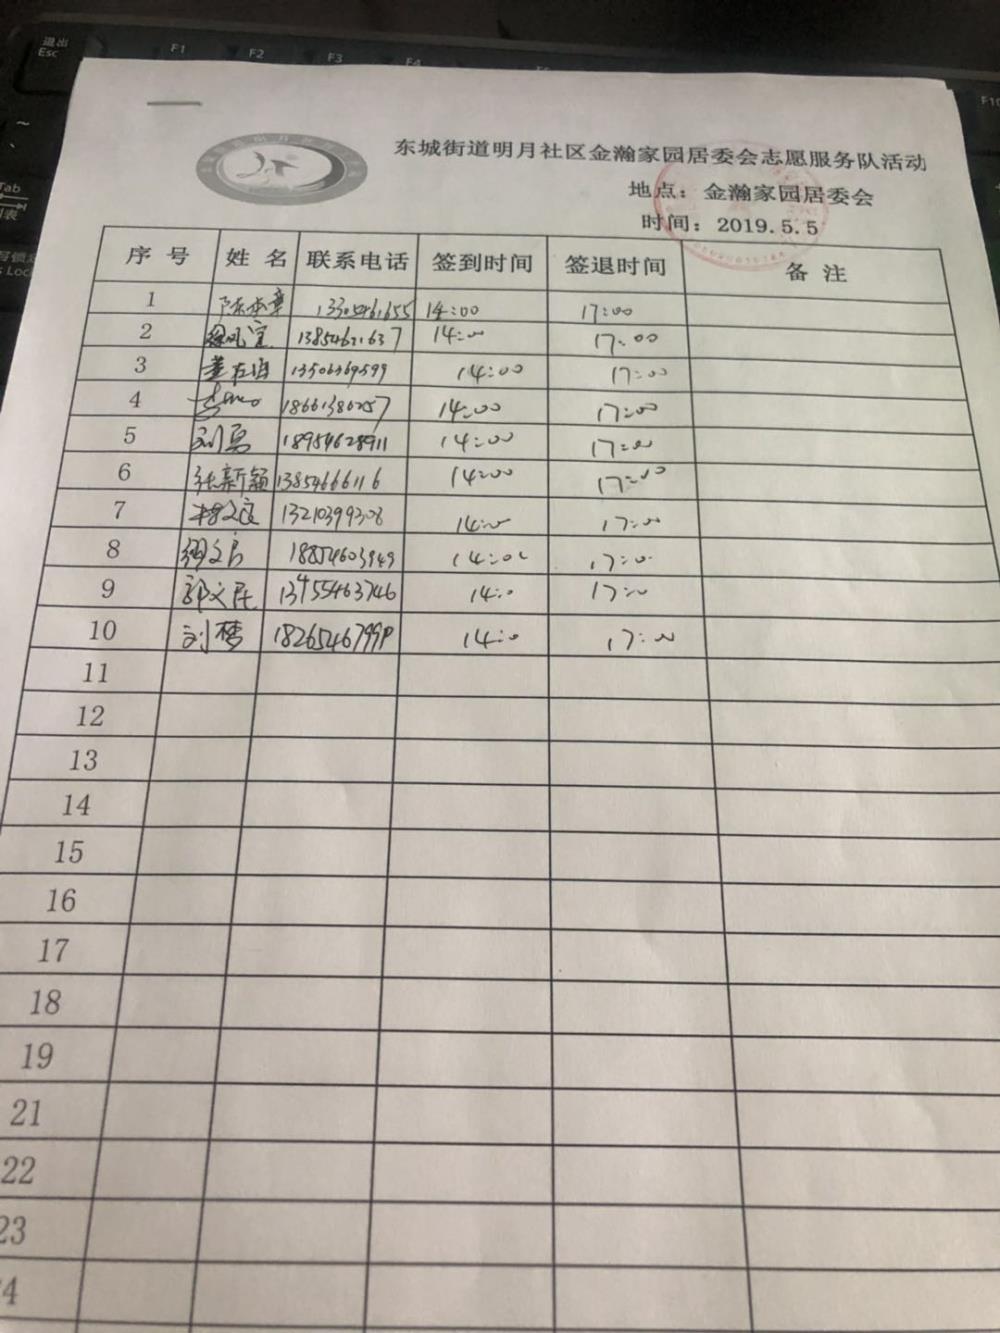 退出
Esc
F1
F2
F3
F4
F10
Tab
东城街道明月社区金瀚家园居委会志愿服务队活动
地点：金瀚家园居委会
时间：2019.5.5
序号 姓名 联系电话 签到时间 签退时间 备注
1 14:00 17:00
2 13854621637 14:00 17:00
3 13506369599 14:00 17:00
4 18661386257 14:00 17:00
5 18954628911 14:00 17:00
6 张新颖 13854666116 14:00 17:00
7 13210399308 14:00 17:00
8 18854603949 14:00 17:00
9 郭文民 13455463746 14:0 17:0
10 刘梦 14:0 17:00
11
12
13
14
15
16
17
18
19
21
22
23
4